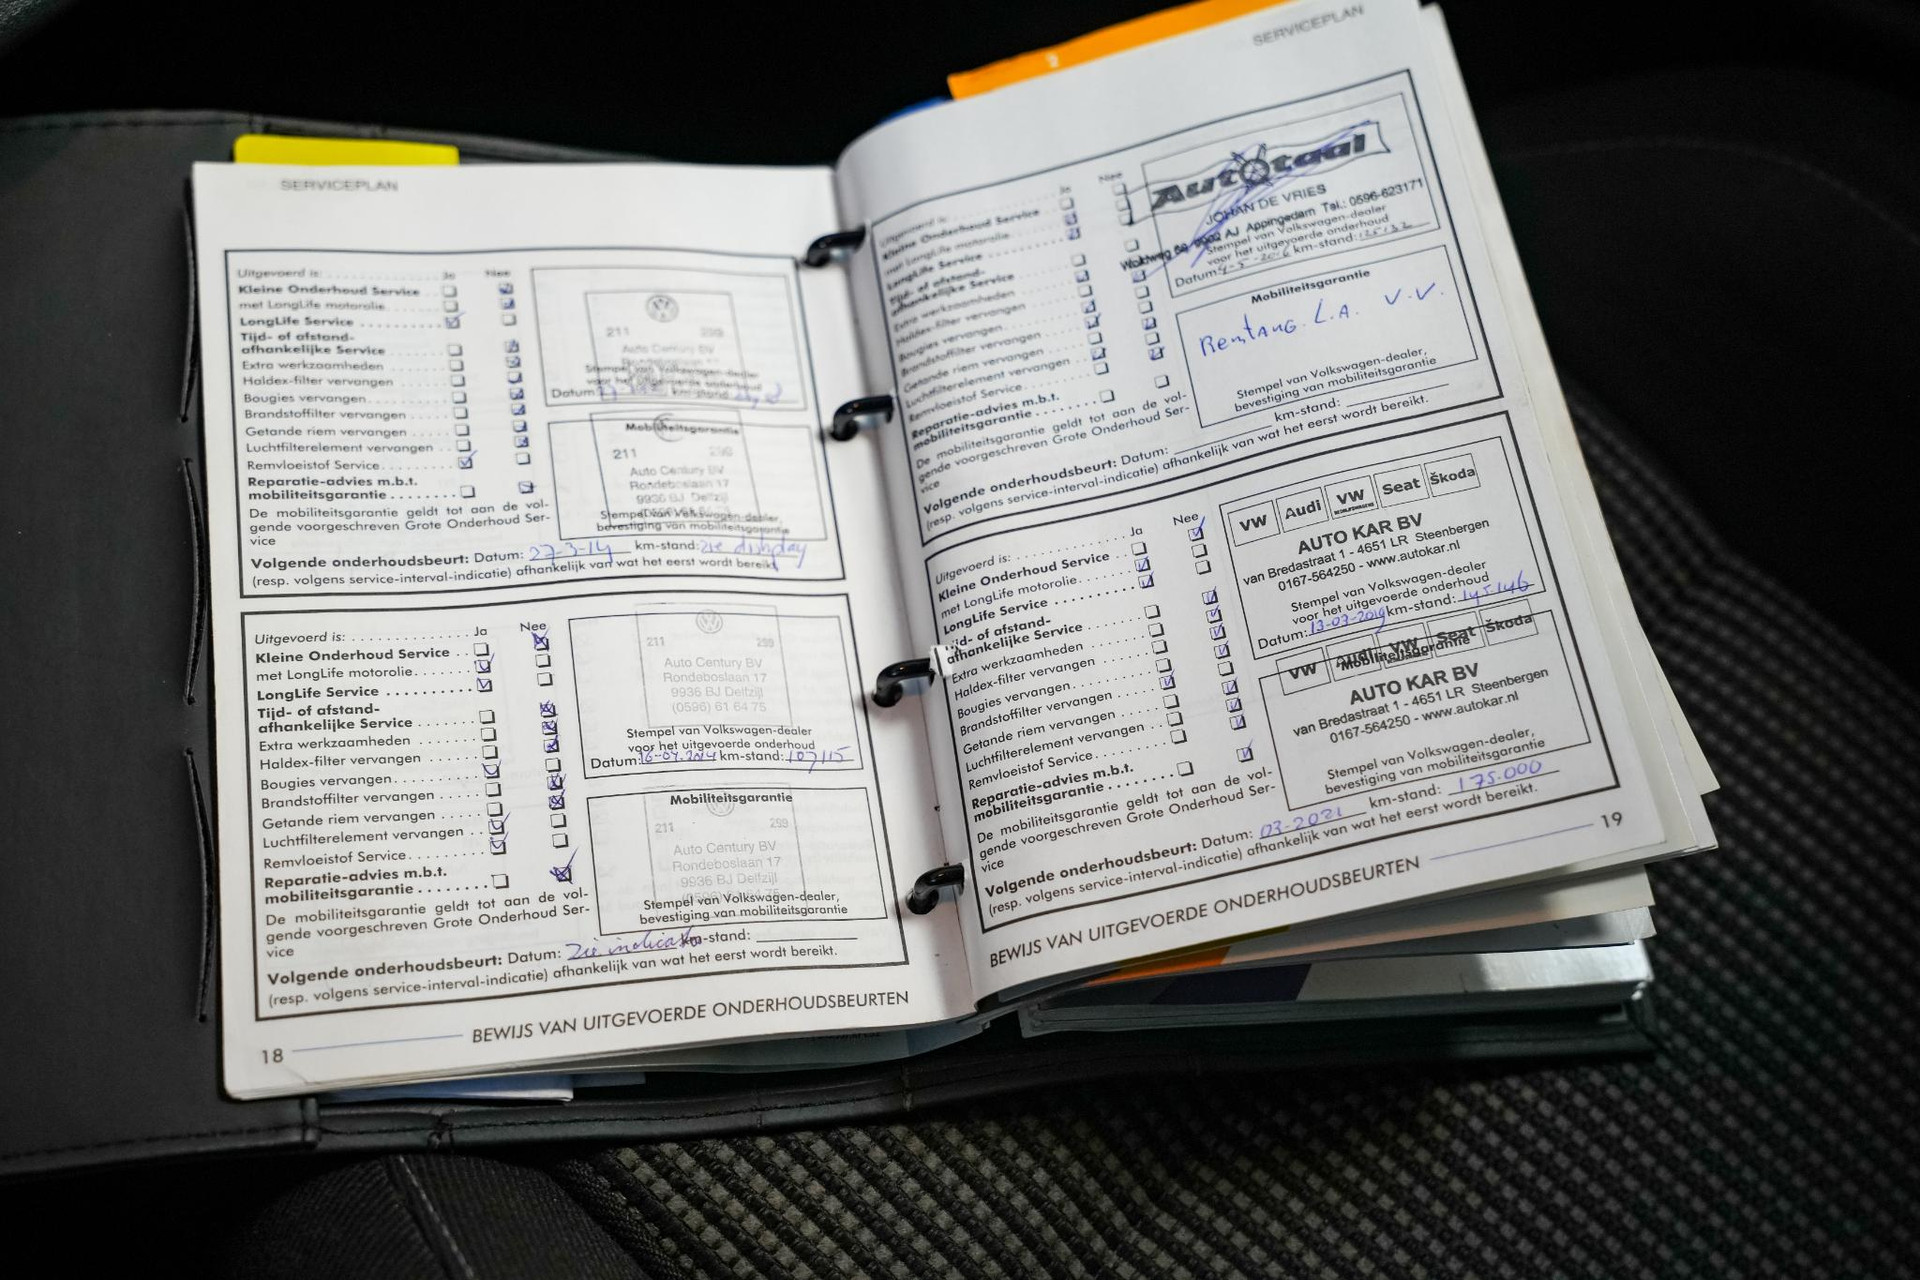 SERVICEPLAN
Uitgevoerd is: Ja Nee
Kleine Onderhoud Service
met LongLife motorolie
LongLife Service
Tijd- of afstand-
afhankelijke Service
Extra werkzaamheden
Haldex-filter vervangen
Bougies vervangen
Brandstoffilter vervangen
Getande riem vervangen
Luchtfilterelement vervangen
Remvloeistof Service
Reparatie-advies m.b.t.
mobiliteitsgarantie
De mobiliteitsgarantie geldt tot aan de vol-
gende voorgeschreven Grote Onderhoud Ser-
vice
211 299
Auto Century BV
Stempel van Volkswagen-dealer
voor het uitgevoerde onderhoud
Datum: km-stand:
Mobiliteitsgarantie
211 299
Auto Century BV
Rondeboslaan 17
9936 BJ Delfzijl
Stempel van Volkswagen-dealer,
bevestiging van mobiliteitsgarantie
Volgende onderhoudsbeurt: Datum: 27-3-14 km-stand: zie display
(resp. volgens service-interval-indicatie) afhankelijk van wat het eerst wordt bereikt.
Uitgevoerd is: Ja Nee
Kleine Onderhoud Service
met LongLife motorolie
LongLife Service
Tijd- of afstand-
afhankelijke Service
Extra werkzaamheden
Haldex-filter vervangen
Bougies vervangen
Brandstoffilter vervangen
Getande riem vervangen
Luchtfilterelement vervangen
Remvloeistof Service
Reparatie-advies m.b.t.
mobiliteitsgarantie
De mobiliteitsgarantie geldt tot aan de vol-
gende voorgeschreven Grote Onderhoud Ser-
vice
211 299
Auto Century BV
Rondeboslaan 17
9936 BJ Delfzijl
(0596) 61 64 75
Stempel van Volkswagen-dealer
voor het uitgevoerde onderhoud
Datum: km-stand: 107115
Mobiliteitsgarantie
211 299
Auto Century BV
Rondeboslaan 17
9936 BJ Delfzijl
(0596) 61 64 75
Stempel van Volkswagen-dealer,
bevestiging van mobiliteitsgarantie
Volgende onderhoudsbeurt: Datum: zie indicatie km-stand:
(resp. volgens service-interval-indicatie) afhankelijk van wat het eerst wordt bereikt.
18 BEWIJS VAN UITGEVOERDE ONDERHOUDSBEURTEN
SERVICEPLAN
Uitgevoerd is: Ja Nee
Kleine Onderhoud Service
met LongLife motorolie
LongLife Service
Tijd- of afstand-
afhankelijke Service
Extra werkzaamheden
Haldex-filter vervangen
Bougies vervangen
Brandstoffilter vervangen
Getande riem vervangen
Luchtfilterelement vervangen
Remvloeistof Service
Reparatie-advies m.b.t.
mobiliteitsgarantie
De mobiliteitsgarantie geldt tot aan de vol-
gende voorgeschreven Grote Onderhoud Ser-
vice
Autotaal
JOHAN DE VRIES
9902 AJ Appingedam Tel.: 0596-623171
Stempel van Volkswagen-dealer
voor het uitgevoerde onderhoud
Datum: 4-5-2016 km-stand: 125132
Mobiliteitsgarantie
Remtang L.A. V.V.
Stempel van Volkswagen-dealer,
bevestiging van mobiliteitsgarantie
Volgende onderhoudsbeurt: Datum: km-stand:
(resp. volgens service-interval-indicatie) afhankelijk van wat het eerst wordt bereikt.
Uitgevoerd is: Ja Nee
Kleine Onderhoud Service
met LongLife motorolie
LongLife Service
Tijd- of afstand-
afhankelijke Service
Extra werkzaamheden
Haldex-filter vervangen
Bougies vervangen
Brandstoffilter vervangen
Getande riem vervangen
Luchtfilterelement vervangen
Remvloeistof Service
Reparatie-advies m.b.t.
mobiliteitsgarantie
De mobiliteitsgarantie geldt tot aan de vol-
gende voorgeschreven Grote Onderhoud Ser-
vice
VW Audi VW Seat Škoda
AUTO KAR BV
van Bredastraat 1 - 4651 LR Steenbergen
0167-564250 - www.autokar.nl
Stempel van Volkswagen-dealer
voor het uitgevoerde onderhoud
Datum: 13-03-2019 km-stand: 145.146
VW Audi VW Seat Škoda
Mobiliteitsgarantie
AUTO KAR BV
van Bredastraat 1 - 4651 LR Steenbergen
0167-564250 - www.autokar.nl
Stempel van Volkswagen-dealer,
bevestiging van mobiliteitsgarantie
Volgende onderhoudsbeurt: Datum: 03-2021 km-stand: 175.000
(resp. volgens service-interval-indicatie) afhankelijk van wat het eerst wordt bereikt.
BEWIJS VAN UITGEVOERDE ONDERHOUDSBEURTEN 19